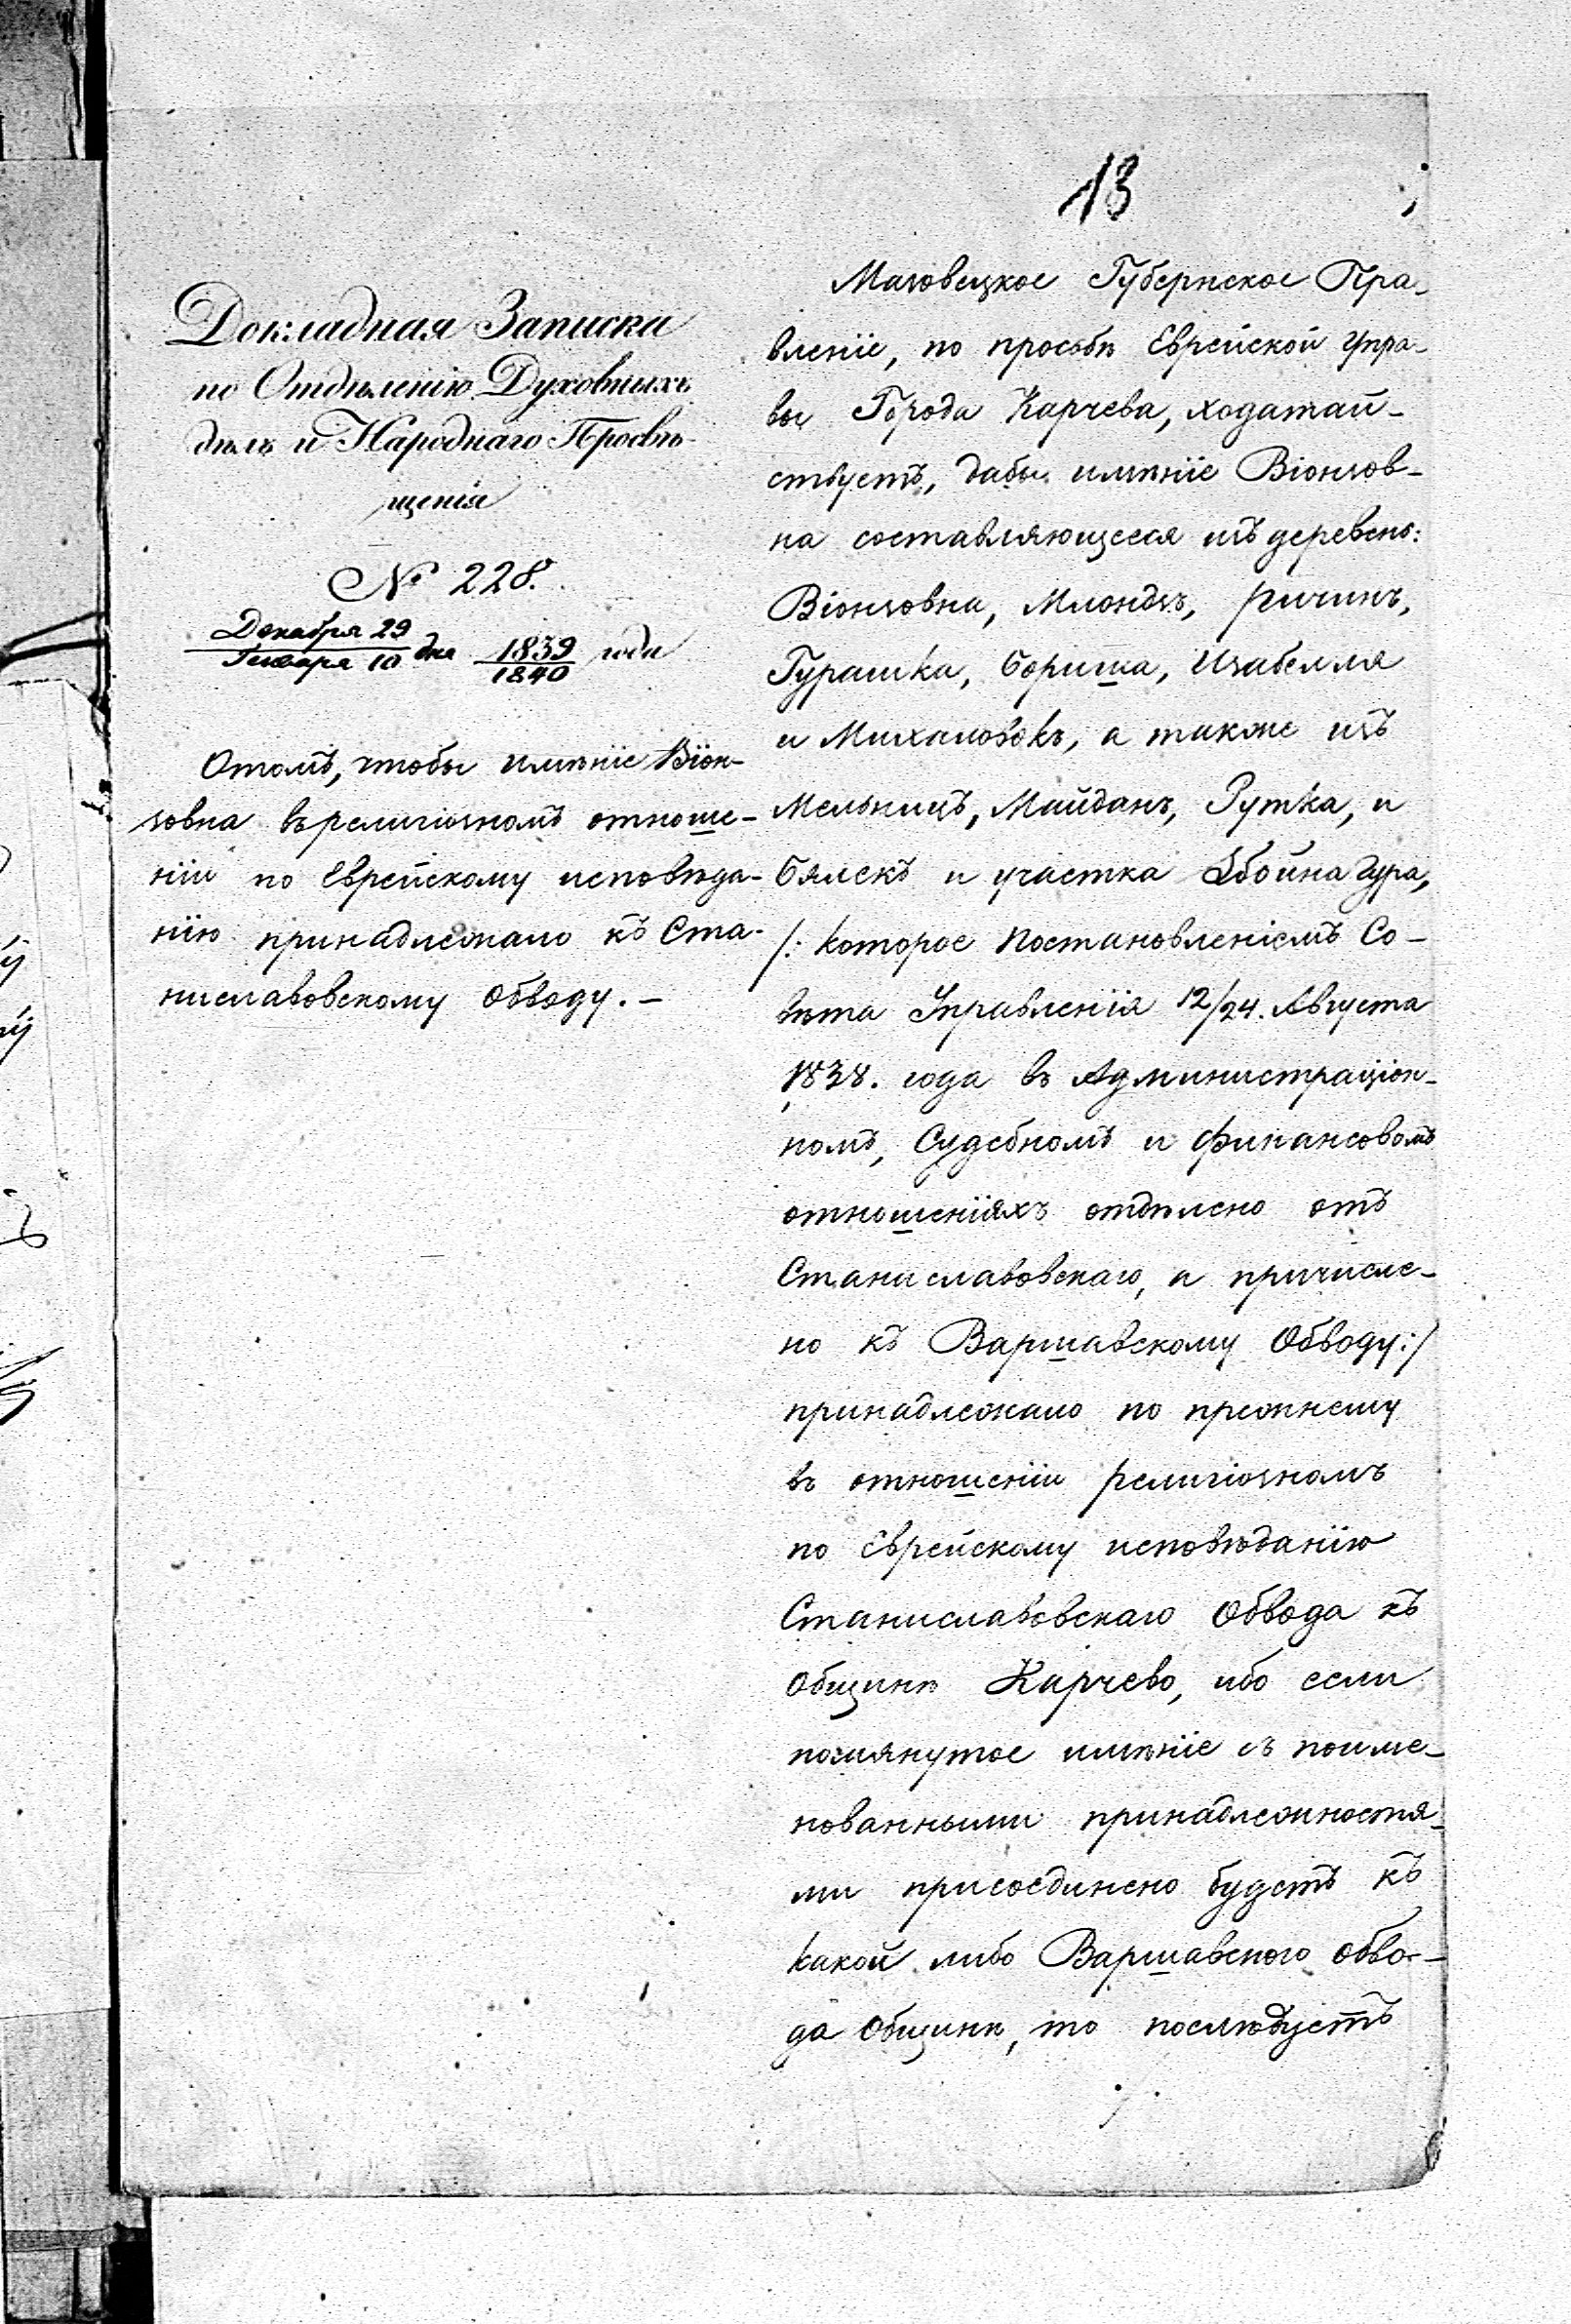 13
Докладная Записка
по Отдѣленію Духовныхъ
дѣлъ и Народнаго Просвѣ-
щенія
№ 228.
Декабря 29 / Генваря 10 дня 1839 / 1840 года
О томъ, чтобы имѣніе Віон-
зовна въ религіозномъ отноше-
ніи по Еврейскому исповѣда-
нію принадлежало къ Ста-
ниславовскому Обводу. –
Мазовецкое Губернское Пра-
вленіе, по просьбѣ Еврейской Упра-
вы Города Карчева, ходатай-
ствуетъ, дабы имѣніе Віонзов-
на составляющееся изъ деревень:
Віонзовна, Млондзъ, Ричицъ,
Гурашка, Бориша, Изабелля
и Михаловокъ, а также изъ
Мельницъ, Майданъ, Рутка, и
Бялекъ и участка Збойна Гура,
/: которое Постановленіемъ Со-
вѣта Управленія 12/24. Августа
1838. года въ Администраціон-
номъ, Судебномъ и Финансовомъ
отношеніяхъ отдѣлено отъ
Станиславовскаго, а причисле-
но къ Варшавскому Обводу :/
принадлежало по прежнему
въ отношеніи религіозномъ
по Еврейскому исповѣданію
Станиславовскаго Обвода къ
Общинѣ Карчево, ибо если
помянутое имѣніе съ поиме-
нованными принадлежностя-
ми присоединено будетъ къ
какой либо Варшавского обво-
да Общинѣ, то послѣдуетъ